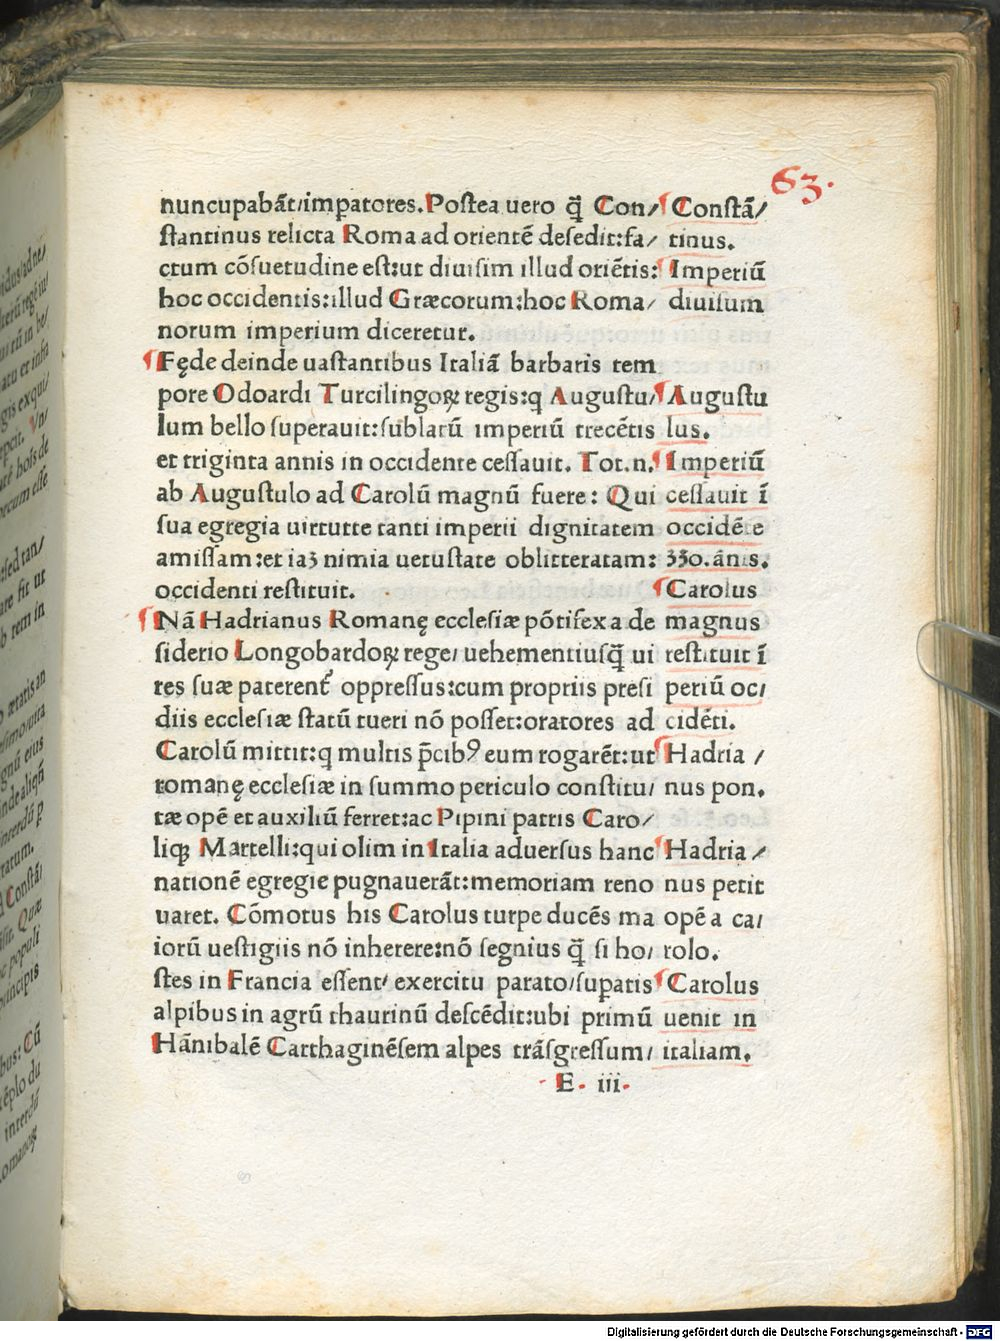 63.
nuncupabãt/impatores. Postea uero q̃ Con/
stantinus relicta Roma ad orientẽ desedit:fa/
ctum cõsuetudine est:ut diuisim illud oriẽtis:
hoc occidentis:illud Græcorum:hoc Roma/
norum imperium diceretur.
¶Fęde deinde uastantibus Italiã barbaris tem
pore Odoardi Turcilingoꝝ regis:q Augustu/
lum bello superauit:sublatũ imperiũ trecẽtis
et triginta annis in occidente cessauit. Tot.n.
ab Augustulo ad Carolũ magnũ fuere: Qui
sua egregia uirtutte tanti imperii dignitatem
amissam:et iaꝫ nimia uetustate oblitteratam:
occidenti restituit.
¶Nã Hadrianus Romanę ecclesiæ põtifex a de
siderio Longobardoꝝ rege/ uehementiusq̃ ui
res suæ paterent᷑ oppressus:cum propriis presi
diis ecclesiæ statũ tueri nõ posset:oratores ad
Carolũ mittit:q multis p̃cibꝰ eum rogarẽt:ut
romanę ecclesiæ in summo periculo constitu/
tæ opẽ et auxiliũ ferret:ac Pipini patris Caro/
liqꝫ Martelli:qui olim in Italia aduersus hanc
nationẽ egregie pugnauerãt:memoriam reno
uaret. Cõmotus his Carolus turpe ducẽs ma
iorũ uestigiis nõ inherere:nõ segnius q̃ si ho/
stes in Francia essent/ exercitu parato/supatis
alpibus in agrũ thaurinũ descẽdit:ubi primũ
Hãnibalẽ Carthaginẽsem alpes trãsgressum/
E. iii.
¶Constã/
tinus.
¶Imperiũ
diuisum
¶Augustu
lus.
¶Imperiũ
cessauit ĩ
occidẽ e
330. ãnis.
¶Carolus
magnus
restituit ĩ
periũ oc/
cidẽti.
¶Hadria /
nus pon.
¶Hadria /
nus petit
opẽ a ca/
rolo.
¶Carolus
uenit in
italiam.
Digitalisierung gefördert durch die Deutsche Forschungsgemeinschaft - DFG